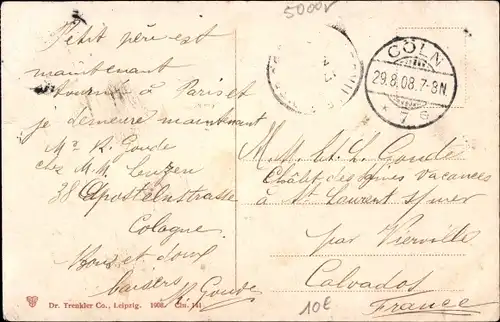 5000v
Petit père est
maintenant
tourné à Paris et
je demeure maintenant
Mr R. Goude
chez M. M. Leuzen
38 Apostelnstrasse
Cologne
Bons et doux
baisers
R. Goude
CÖLN
29.8.08.7-8N
* 7 g
M. M. et L. Goude
Châlet des fines Vacances
à St Laurent s/ mer
par Vierville
Calvados
France
10€
Dr. Trenkler Co., Leipzig. 1908. Cln. 141